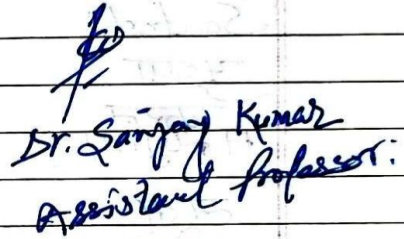 Dr. Sanjay Kumar
Assistant Professor: